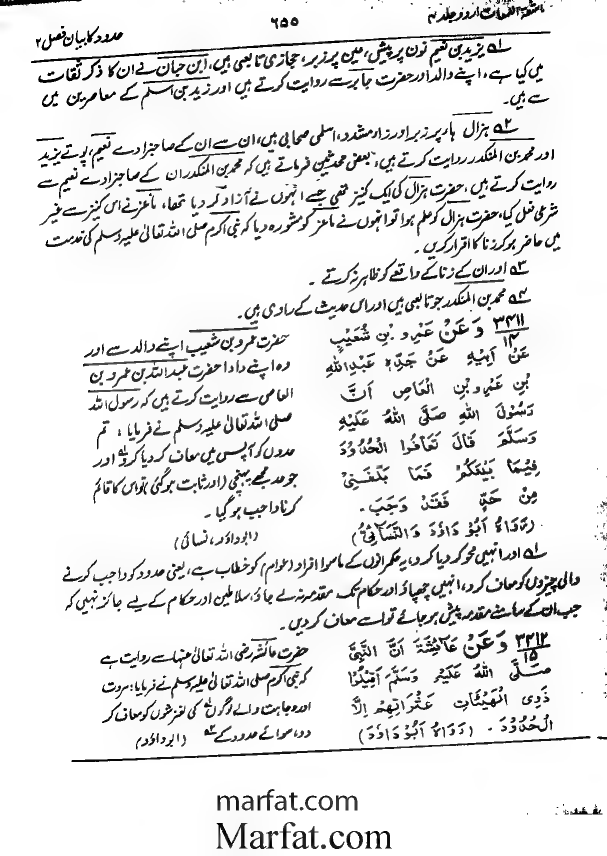 اشعۃ اللمعات اردو جلد ۴ ۶۵۵ حدود کا بیان فصل ۲
۵۱ یزید بن نعیم نون پر پیش، عین پر زبر، حجازی تابعی ہیں، ابن حبان نے ان کا ذکر ثقات
میں کیا ہے، اپنے والد اور حضرت جابر سے روایت کرتے ہیں اور زید بن اسلم کے معاصرین میں
سے ہیں۔
۵۲ ہزال ہاء پر زبر اور زاء مشدد، اسلمی صحابی ہیں، ان سے ان کے صاحبزادے نعیم، پوتے یزید
اور محمد بن المنکدر روایت کرتے ہیں، بعض محدثین فرماتے ہیں کہ محمد بن المنکدر ان کے صاحبزادے نعیم سے
روایت کرتے ہیں، حضرت ہزال کی ایک کنیز تھی جسے انہوں نے آزاد کر دیا تھا، ماعز نے اس کنیز سے غیر
شرعی فعل کیا، حضرت ہزال کو علم ہوا تو انہوں نے ماعز کو مشورہ دیا کہ نبی اکرم صلی اللہ تعالیٰ علیہ وسلم کی خدمت
میں حاضر ہو کر زنا کا اقرار کریں۔
۵۳ اور ان کے زنا کے واقعے کو ظاہر نہ کرتے۔
۵۴ محمد بن المنکدر جو تابعی ہیں اور اس حدیث کے راوی ہیں۔
۳۴۱۱ وَعَنْ عَمْرِو بْنِ شُعَيْبٍ
۱۴
عَنْ اَبِيْهِ عَنْ جَدِّهٖ عَبْدِاللّٰهِ
بْنِ عَمْرِو بْنِ الْعَاصِ اَنَّ
رَسُوْلَ اللّٰهِ صَلَّى اللّٰهُ عَلَيْهِ
وَسَلَّمَ قَالَ تَعَافَوُا الْحُدُوْدَ
فِيْمَا بَيْنَكُمْ فَمَا بَلَغَنِيْ
مِنْ حَدٍّ فَقَدْ وَجَبَ۔
(رَوَاهُ اَبُوْ دَاوٗدَ وَ النَّسَائِيُّ)
حضرت عمرو بن شعیب اپنے والد سے اور
وہ اپنے دادا حضرت عبداللہ بن عمرو بن
العاص سے روایت کرتے ہیں کہ رسول اللہ
صلی اللہ تعالیٰ علیہ وسلم نے فرمایا، تم
حدوں کو آپس میں معاف کر دیا کرو۱ اور
جو حد مجھے پہنچی (اور ثابت ہو گئی) تو اس کا قائم
کرنا واجب ہو گیا۔
(ابوداؤد، نسائی)
۵۱ اور انہیں محو کر دیا کرو، یہ حکمرانوں کے ماسوا افراد (عوام) کو خطاب ہے، یعنی حدود کو واجب کرنے
والی چیزوں کو معاف کر دو، انہیں چھپاؤ اور حکام تک مقدمہ نہ لے جاؤ، سلاطین اور حکام کے لیے جائز نہیں کہ
جب ان کے سامنے مقدمہ پیش ہو جائے تو اسے معاف کر دیں۔
۳۴۱۲ وَعَنْ عَائِشَةَ اَنَّ النَّبِيَّ
۱۵
صَلَّى اللّٰهُ عَلَيْهِ وَسَلَّمَ اَقِيْلُوْا
ذَوِى الْهَيْئَاتِ عَثَرَاتِهِمْ اِلَّا
الْحُدُوْدَ۔ (رَوَاهُ اَبُوْ دَاوٗدَ)
حضرت عائشہ رضی اللہ تعالیٰ عنہا سے روایت ہے
کہ نبی اکرم صلی اللہ تعالیٰ علیہ وسلم نے فرمایا: مروت
اور وجاہت والے لوگوں۱ کی لغزشوں کو معاف کر
دو، سوائے حدود کے۲ (ابوداؤد)
marfat.com
Marfat.com